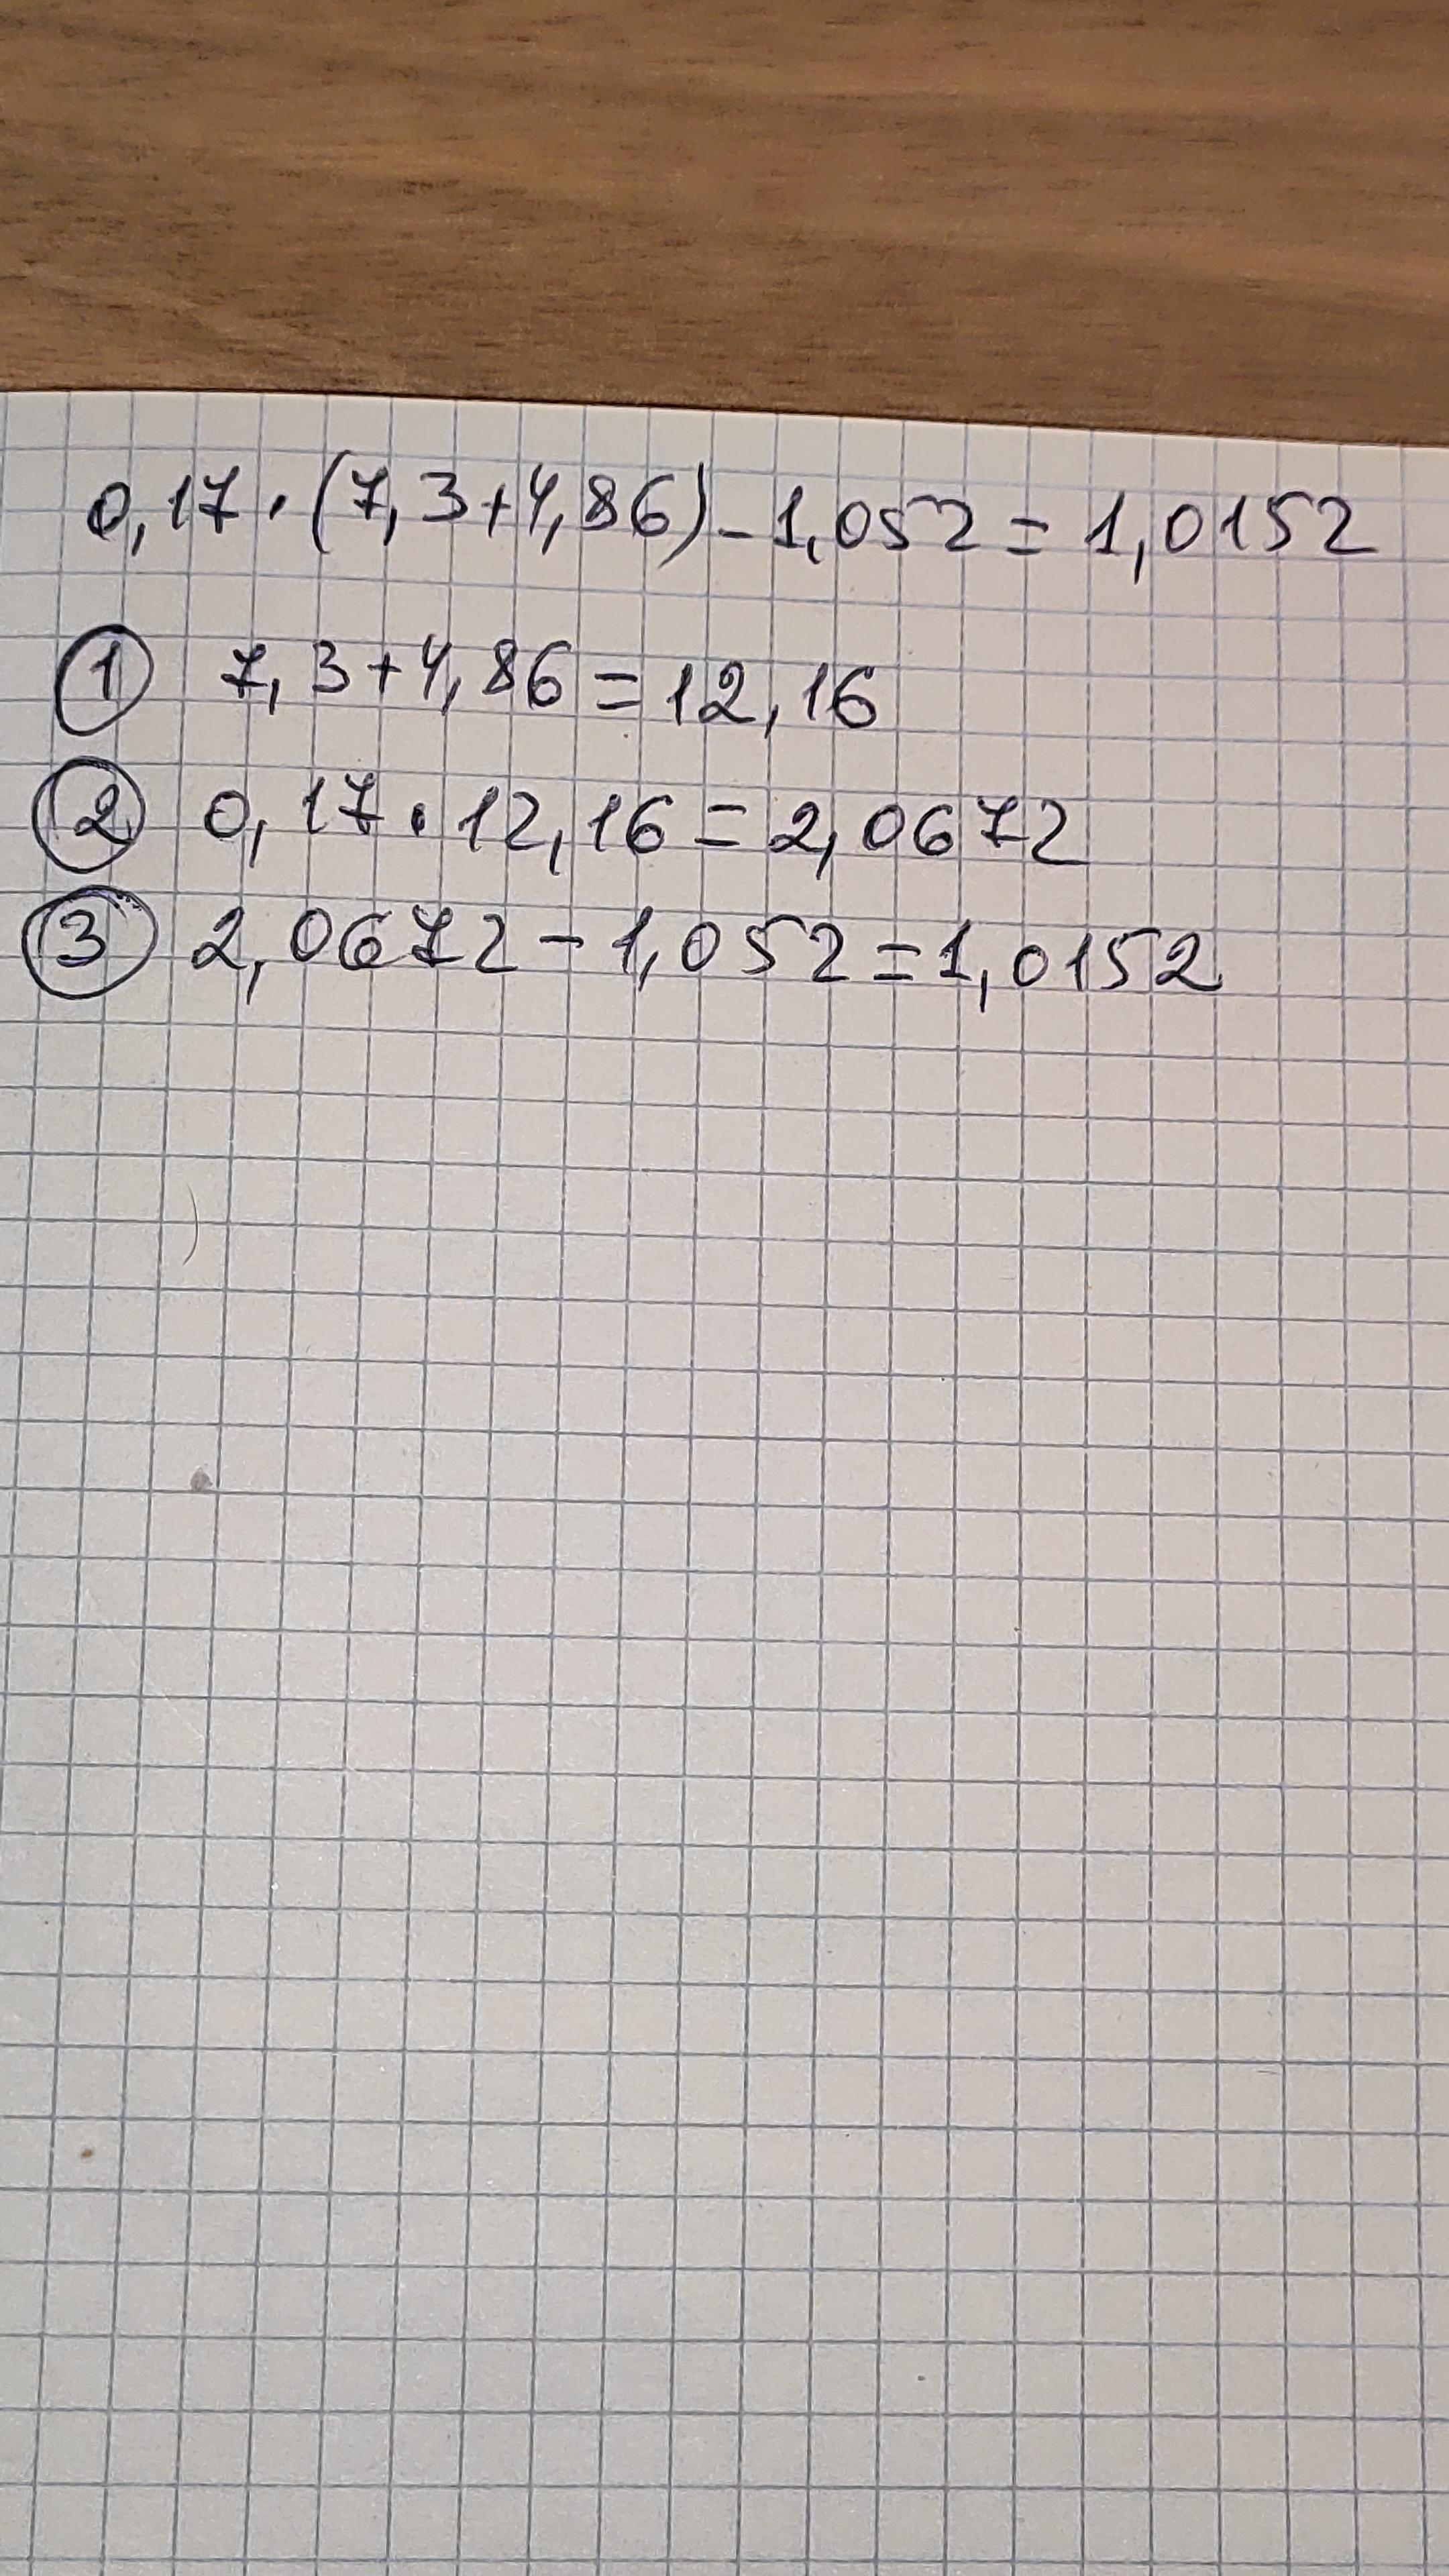 0,17 · (7,3+4,86) - 1,052 = 1,0152
① 7,3+4,86 = 12,16
② 0,17 · 12,16 = 2,0672
③ 2,0672 - 1,052 = 1,0152